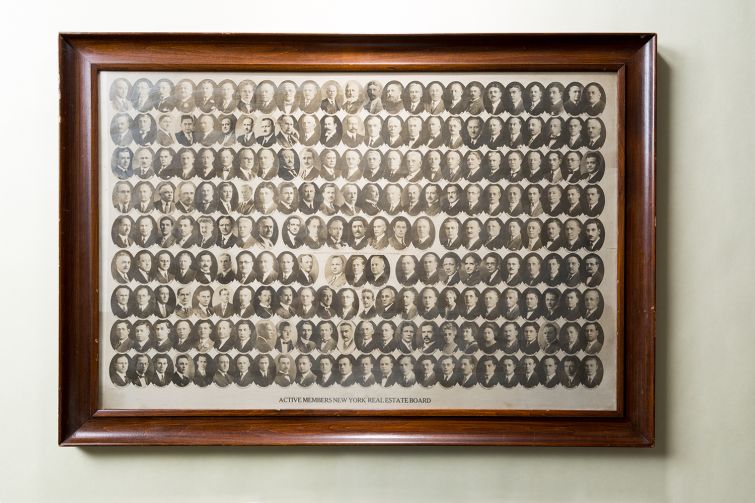 ACTIVE MEMBERS NEW YORK REAL ESTATE BOARD